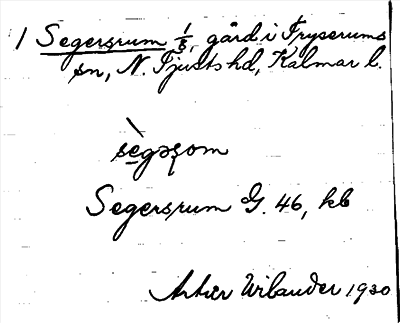 1 Segersrum 1/8, gård i Tryserums
sn, N. Tjusts hd, Kalmar l.
sègəșom
Segersrum G. 46, kb
Artur Wilander 1930